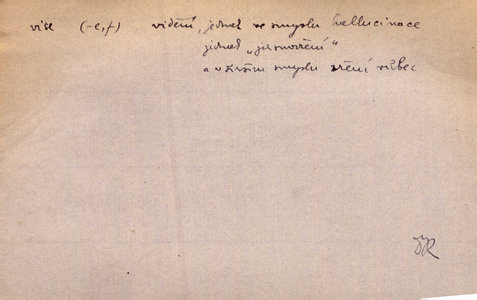 vise (-e, f) vidění, jednak ve smyslu hallucinace
jednak „jasnozření“
a v širším smyslu zření vůbec